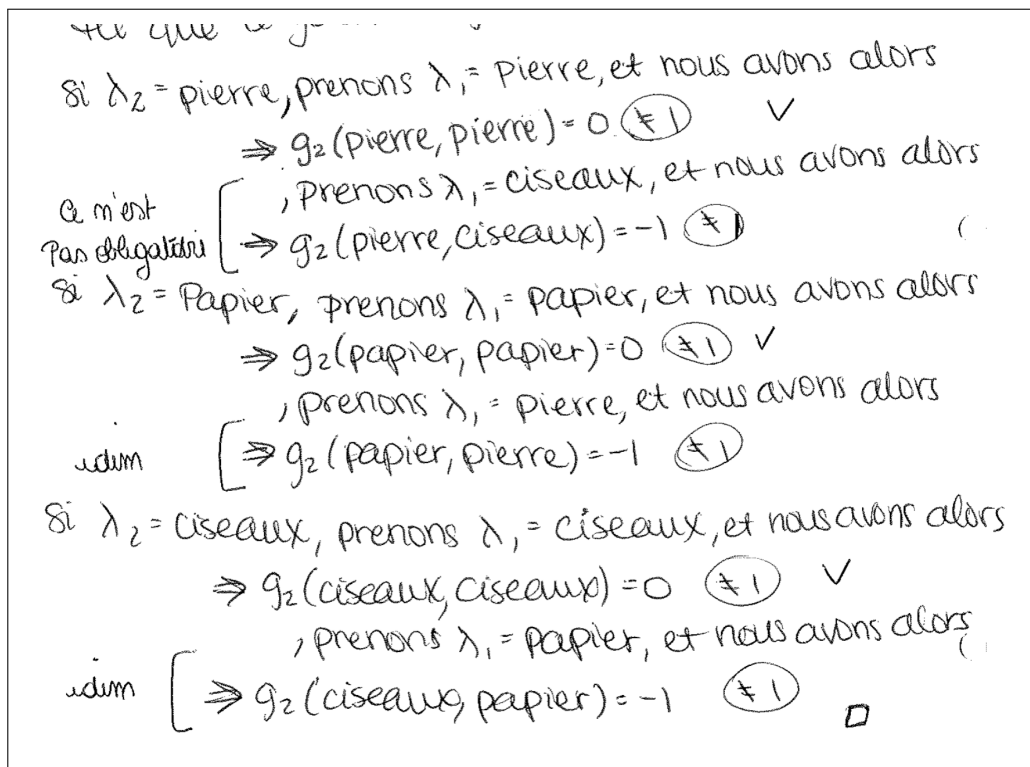 tel que le
Si λ₂ = pierre, prenons λ₁ = pierre, et nous avons alors
⇒ g₂(pierre, pierre) = 0 ≠ 1 ✓
, prenons λ₁ = ciseaux, et nous avons alors
Ce n'est
pas obligatoire
⇒ g₂(pierre, ciseaux) = -1 ≠ 1
Si λ₂ = Papier, prenons λ₁ = papier, et nous avons alors
⇒ g₂(papier, papier) = 0 ≠ 1 ✓
, prenons λ₁ = pierre, et nous avons alors
idem
⇒ g₂(papier, pierre) = -1 ≠ 1
Si λ₂ = ciseaux, prenons λ₁ = ciseaux, et nous avons alors
⇒ g₂(ciseaux, ciseaux) = 0 ≠ 1 ✓
, prenons λ₁ = papier, et nous avons alors
idem
⇒ g₂(ciseaux, papier) = -1 ≠ 1
□